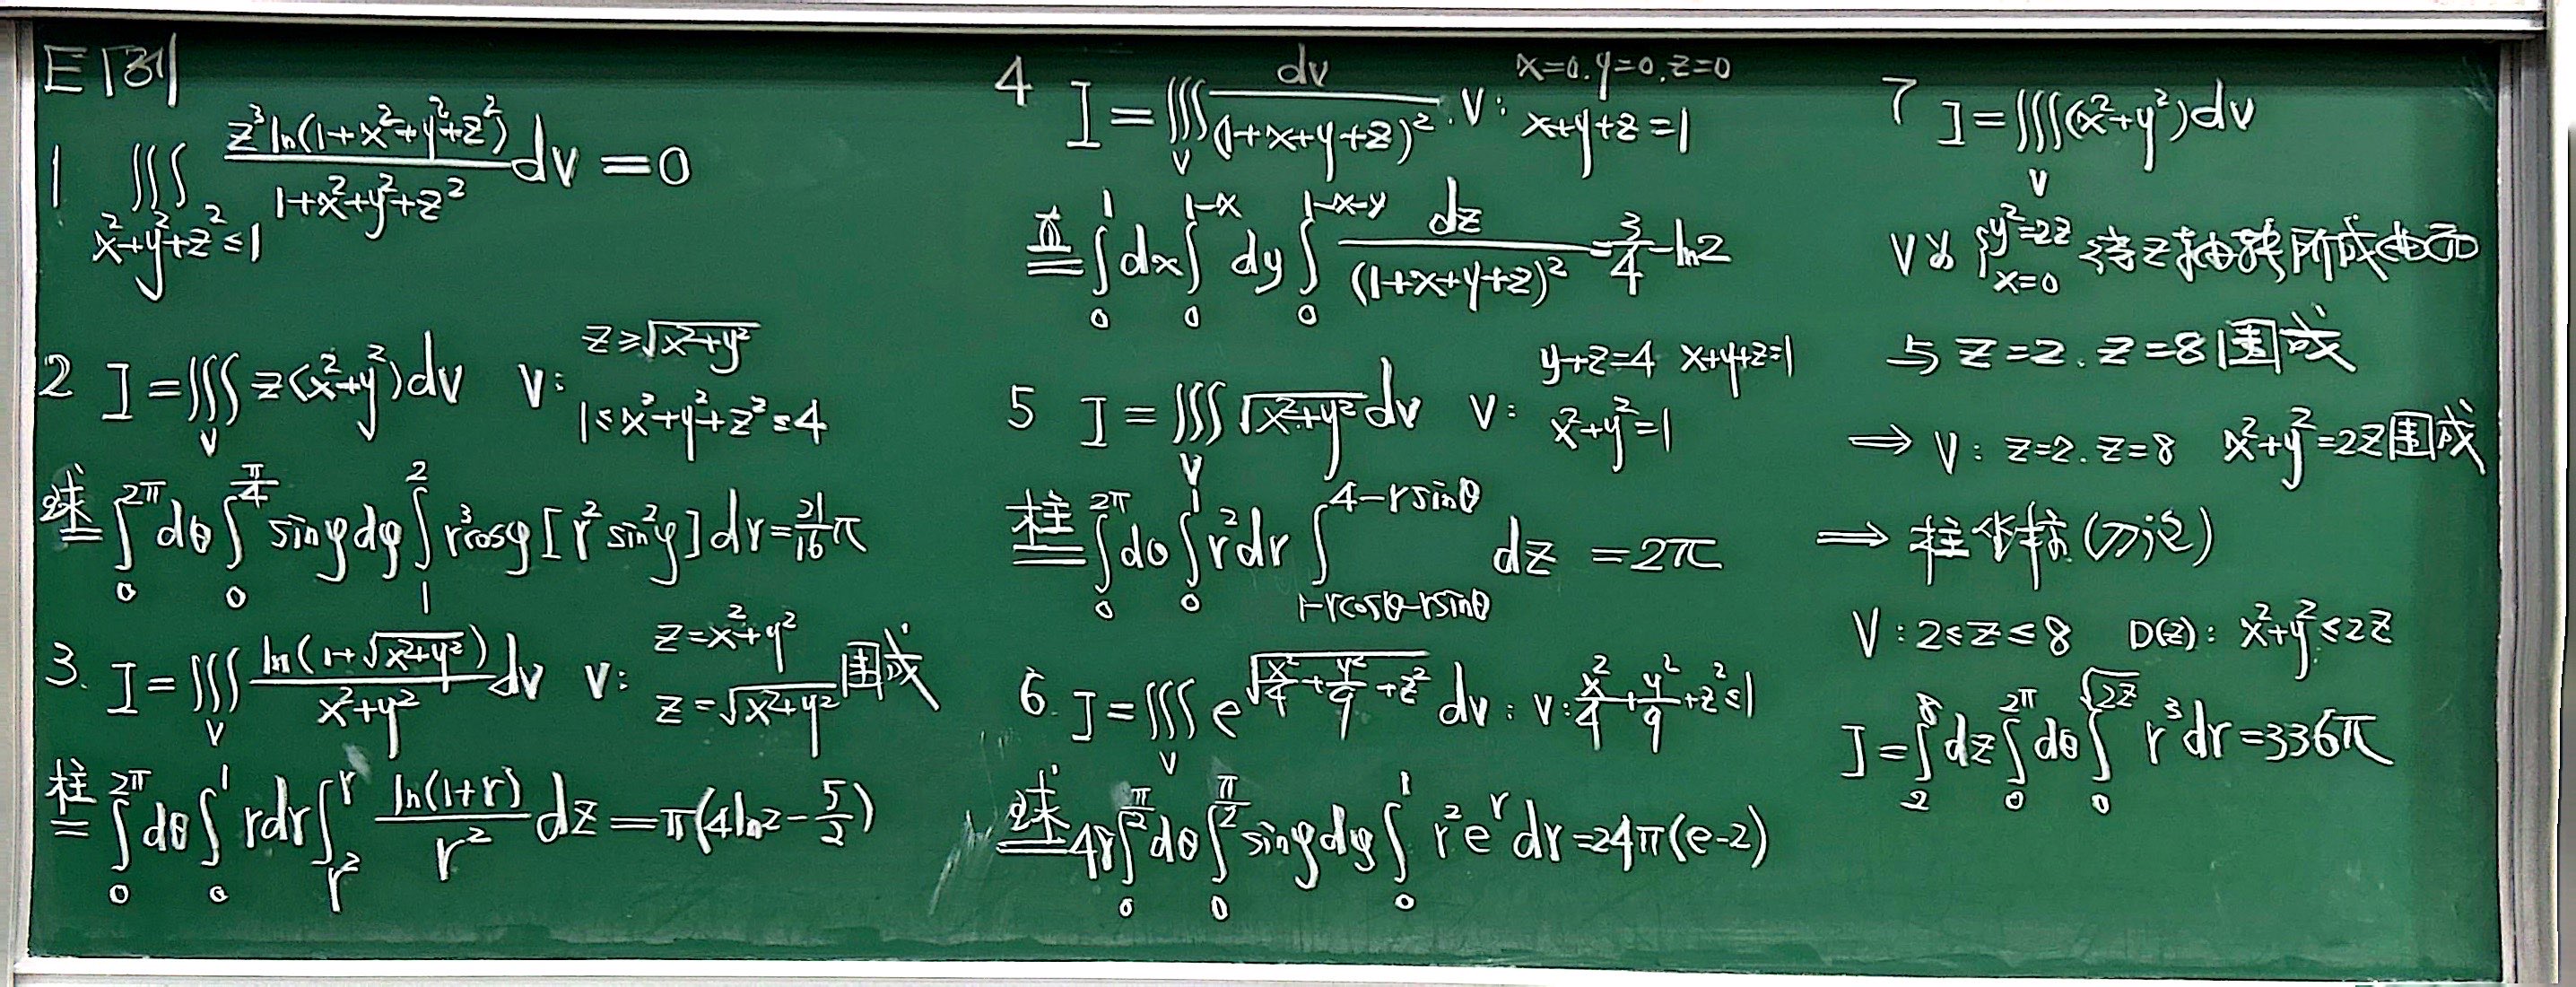 E 8|
1 ∭_{x²+y²+z²≤1} \frac{z³ln(1+x²+y²+z²)}{1+x²+y²+z²} dv = 0
2 I = ∭_V z(x²+y²)dv V: z≥√(x²+y²) 1≤x²+y²+z²≤4
球= ∫_0^{2π} dθ ∫_0^{π/4} sinφdφ ∫_1^2 r³cosφ[r²sin²φ]dr = \frac{21}{16}π
3. I = ∭_V \frac{ln(1+√(x²+y²))}{x²+y²} dv V: z=x²+y² z=√(x²+y²) 围成
柱= ∫_0^{2π} dθ ∫_0^1 rdr ∫_{r²}^{r} \frac{ln(1+r)}{r²} dz = π(4ln2-\frac{5}{2})
4 I = ∭_V \frac{dv}{(1+x+y+z)²}. V: x=0.y=0.z=0 x+y+z=1
直= ∫_0^1 dx ∫_0^{1-x} dy ∫_0^{1-x-y} \frac{dz}{(1+x+y+z)²} = \frac{3}{4}-ln2
5 I = ∭_V √(x²+y²) dv V: y+z=4 x+y+z=1 x²+y²=1
柱= ∫_0^{2π} dθ ∫_0^1 r²dr ∫_{1-rcosθ-rsinθ}^{4-rsinθ} dz = 2π
6 I = ∭_V e^{√(\frac{x²}{4}+\frac{y²}{9}+z²)} dv: V: \frac{x²}{4}+\frac{y²}{9}+z²≤1
球= 48 ∫_0^{π/2} dθ ∫_0^{π/2} sinφdφ ∫_0^1 r²e^r dr = 24π(e-2)
7 I = ∭_V (x²+y²)dv
V为 {y²=2z x=0 绕z轴转所成曲面
与 z=2. z=8 围成
⇒ V: z=2. z=8 x²+y²=2z围成
⇒ 柱坐标(方法)
V: 2≤z≤8 D(z): x²+y²≤2z
I = ∫_2^8 dz ∫_0^{2π} dθ ∫_0^{√(2z)} r³dr = 336π